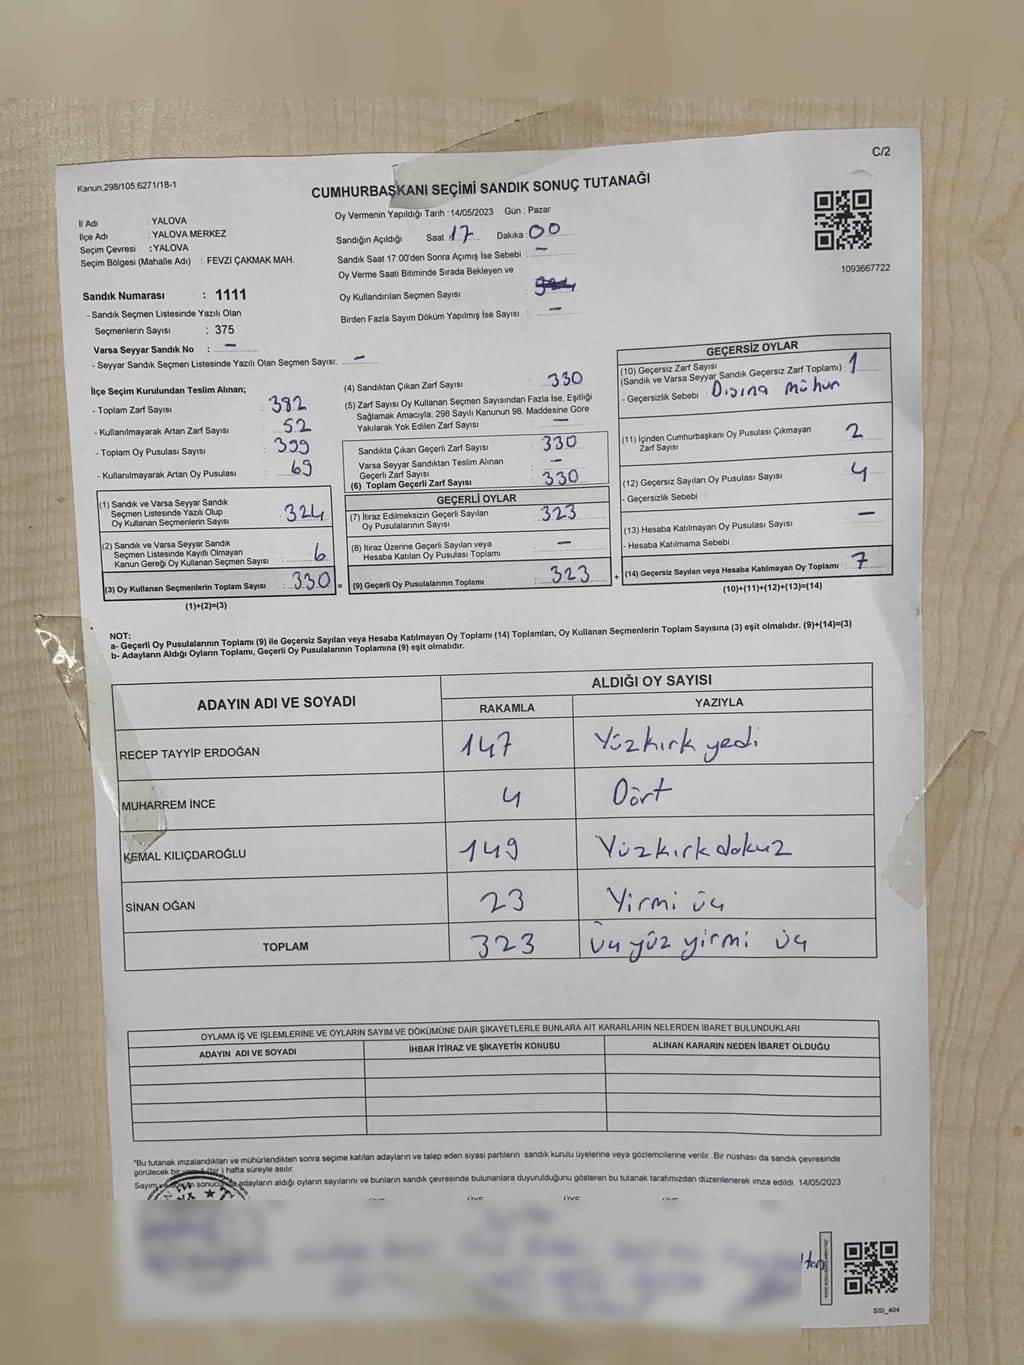 C/2
Kanun;298/105;6271/18-1
CUMHURBAŞKANI SEÇİMİ SANDIK SONUÇ TUTANAĞI
İl Adı : YALOVA
İlçe Adı : YALOVA MERKEZ
Seçim Çevresi : YALOVA
Seçim Bölgesi (Mahalle Adı) : FEVZİ ÇAKMAK MAH.
Sandık Numarası : 1111
- Sandık Seçmen Listesinde Yazılı Olan
Seçmenlerin Sayısı : 375
Varsa Seyyar Sandık No : –
- Seyyar Sandık Seçmen Listesinde Yazılı Olan Seçmen Sayısı: –
Oy Vermenin Yapıldığı Tarih :14/05/2023 Gün : Pazar
Sandığın Açıldığı Saat 17 Dakika : 00
Sandık Saat 17:00'den Sonra Açımış İse Sebebi : –
Oy Verme Saati Bitiminde Sırada Bekleyen ve
Oy Kullandırılan Seçmen Sayısı :
Birden Fazla Sayım Döküm Yapılmış İse Sayısı : –
1093667722
İlçe Seçim Kurulundan Teslim Alınan;
- Toplam Zarf Sayısı : 382
- Kullanılmayarak Artan Zarf Sayısı : 52
- Toplam Oy Pusulası Sayısı : 399
- Kullanılmayarak Artan Oy Pusulası : 69
(1) Sandık ve Varsa Seyyar Sandık
Seçmen Listesinde Yazılı Olup
Oy Kullanan Seçmenlerin Sayısı : 324
(2) Sandık ve Varsa Seyyar Sandık
Seçmen Listesinde Kayıtlı Olmayan
Kanun Gereği Oy Kullanan Seçmen Sayısı : 6
(3) Oy Kullanan Seçmenlerin Toplam Sayısı : 330 =
(1)+(2)=(3)
(4) Sandıktan Çıkan Zarf Sayısı : 330
(5) Zarf Sayısı Oy Kullanan Seçmen Sayısından Fazla İse, Eşitliği
Sağlamak Amacıyla; 298 Sayılı Kanunun 98. Maddesine Göre
Yakılarak Yok Edilen Zarf Sayısı : –
Sandıkta Çıkan Geçerli Zarf Sayısı : 330
Varsa Seyyar Sandıktan Teslim Alınan
Geçerli Zarf Sayısı : –
(6) Toplam Geçerli Zarf Sayısı : 330
GEÇERLİ OYLAR
(7) İtiraz Edilmeksizin Geçerli Sayılan
Oy Pusulalarının Sayısı : 323
(8) İtiraz Üzerine Geçerli Sayılan veya
Hesaba Katılan Oy Pusulası Toplamı : –
(9) Geçerli Oy Pusulalarının Toplamı : 323 +
GEÇERSİZ OYLAR
(10) Geçersiz Zarf Sayısı
(Sandık ve Varsa Seyyar Sandık Geçersiz Zarf Toplamı) : 1
- Geçersizlik Sebebi : Dışına mühür
(11) İçinden Cumhurbaşkanı Oy Pusulası Çıkmayan
Zarf Sayısı : 2
(12) Geçersiz Sayılan Oy Pusulası Sayısı : 4
- Geçersizlik Sebebi :
(13) Hesaba Katılmayan Oy Pusulası Sayısı : –
- Hesaba Katılmama Sebebi :
(14) Geçersiz Sayılan veya Hesaba Katılmayan Oy Toplamı : 7
(10)+(11)+(12)+(13)=(14)
NOT:
a- Geçerli Oy Pusulalarının Toplamı (9) ile Geçersiz Sayılan veya Hesaba Katılmayan Oy Toplamı (14) Toplamları, Oy Kullanan Seçmenlerin Toplam Sayısına (3) eşit olmalıdır. (9)+(14)=(3)
b- Adayların Aldığı Oyların Toplamı, Geçerli Oy Pusulalarının Toplamına (9) eşit olmalıdır.
ADAYIN ADI VE SOYADI ALDIĞI OY SAYISI
RAKAMLA YAZIYLA
RECEP TAYYİP ERDOĞAN 147 Yüzkırk yedi
MUHARREM İNCE 4 Dört
KEMAL KILIÇDAROĞLU 149 Yüzkırkdokuz
SİNAN OĞAN 23 Yirmi üç
TOPLAM 323 üç yüz yirmi üç
OYLAMA İŞ VE İŞLEMLERİNE VE OYLARIN SAYIM VE DÖKÜMÜNE DAİR ŞİKAYETLERLE BUNLARA AİT KARARLARIN NELERDEN İBARET BULUNDUKLARI
ADAYIN ADI VE SOYADI İHBAR İTİRAZ VE ŞİKAYETİN KONUSU ALINAN KARARIN NEDEN İBARET OLDUĞU
*Bu tutanak imzalandıktan ve mühürlendikten sonra seçime katılan adayların ve talep eden siyasi partilerin sandık kurulu üyelerine veya gözlemcilerine verilir. Bir nüshası da sandık çevresinde
görülecek bir yere 1 (bir ) hafta süreyle asılır.
Sayım ve döküm sonucunda adayların aldığı oyların sayılarını ve bunların sandık çevresinde bulunanlara duyurulduğunu gösteren bu tutanak tarafımızdan düzenlenerek imza edildi. 14/05/2023
ÜYE ÜYE ÜYE ÜYE
SSI_404